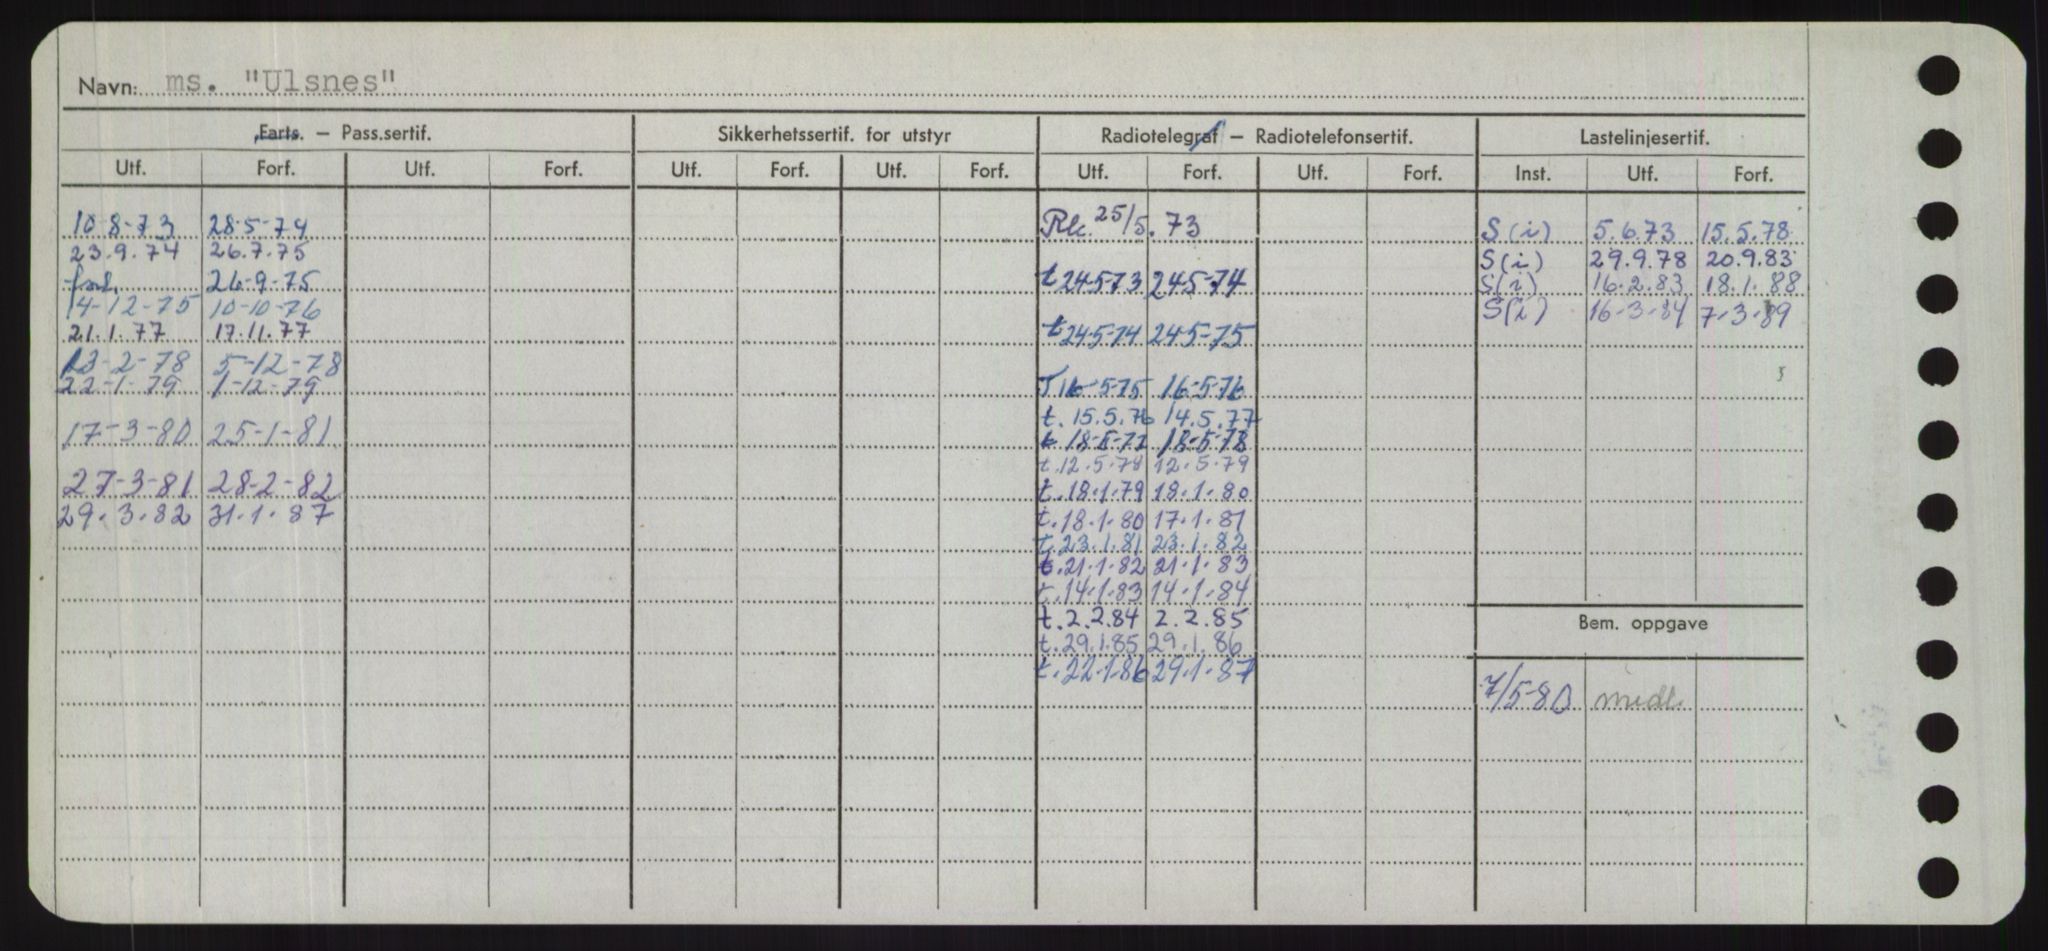 Navn: ms. "Ulsnes"
Farts. — Pass.sertif.
Sikkerhetssertif. for utstyr
Radiotelegraf — Radiotelefonsertif.
Lastelinjesertif.
Utf. Forf. Utf. Forf. Utf. Forf. Utf. Forf. Utf. Forf. Utf. Forf. Inst. Utf. Forf.
10-8-73 28-5-74
23.9.74 26.7.75
forl. 26-9-75
14-12-75 10-10-76
21.1.77 17.11.77
13-2-78 5-12-78
22-1-79 1-12-79
17-3-80 25-1-81
27-3-81 28-2-82
29.3.82 31.1.87
Rk. 25/5.73
t 24-5-73 24-5-74
t 24-5-74 24-5-75
T 16-5-75 16-5-76
t. 15.5.76 14.5.77
t 18-5-77 18-5-78
t. 12.5.78 12.5.79
t. 18.1.79 18.1.80
t. 18.1.80 17.1.81
t. 23.1.81 23.1.82
t. 21.1.82 21.1.83
t. 14.1.83 14.1.84
t. 2.2.84 2.2.85
t. 29.1.85 29.1.86
t. 22.1.86 29.1.87
S (i) 5.6.73 15.5.78
S (i) 29.9.78 20.9.83
S(i) 16.2.83 18.1.88
S(i) 16-3-84 7-3-89
Bem. oppgave
7/5-80 midl.